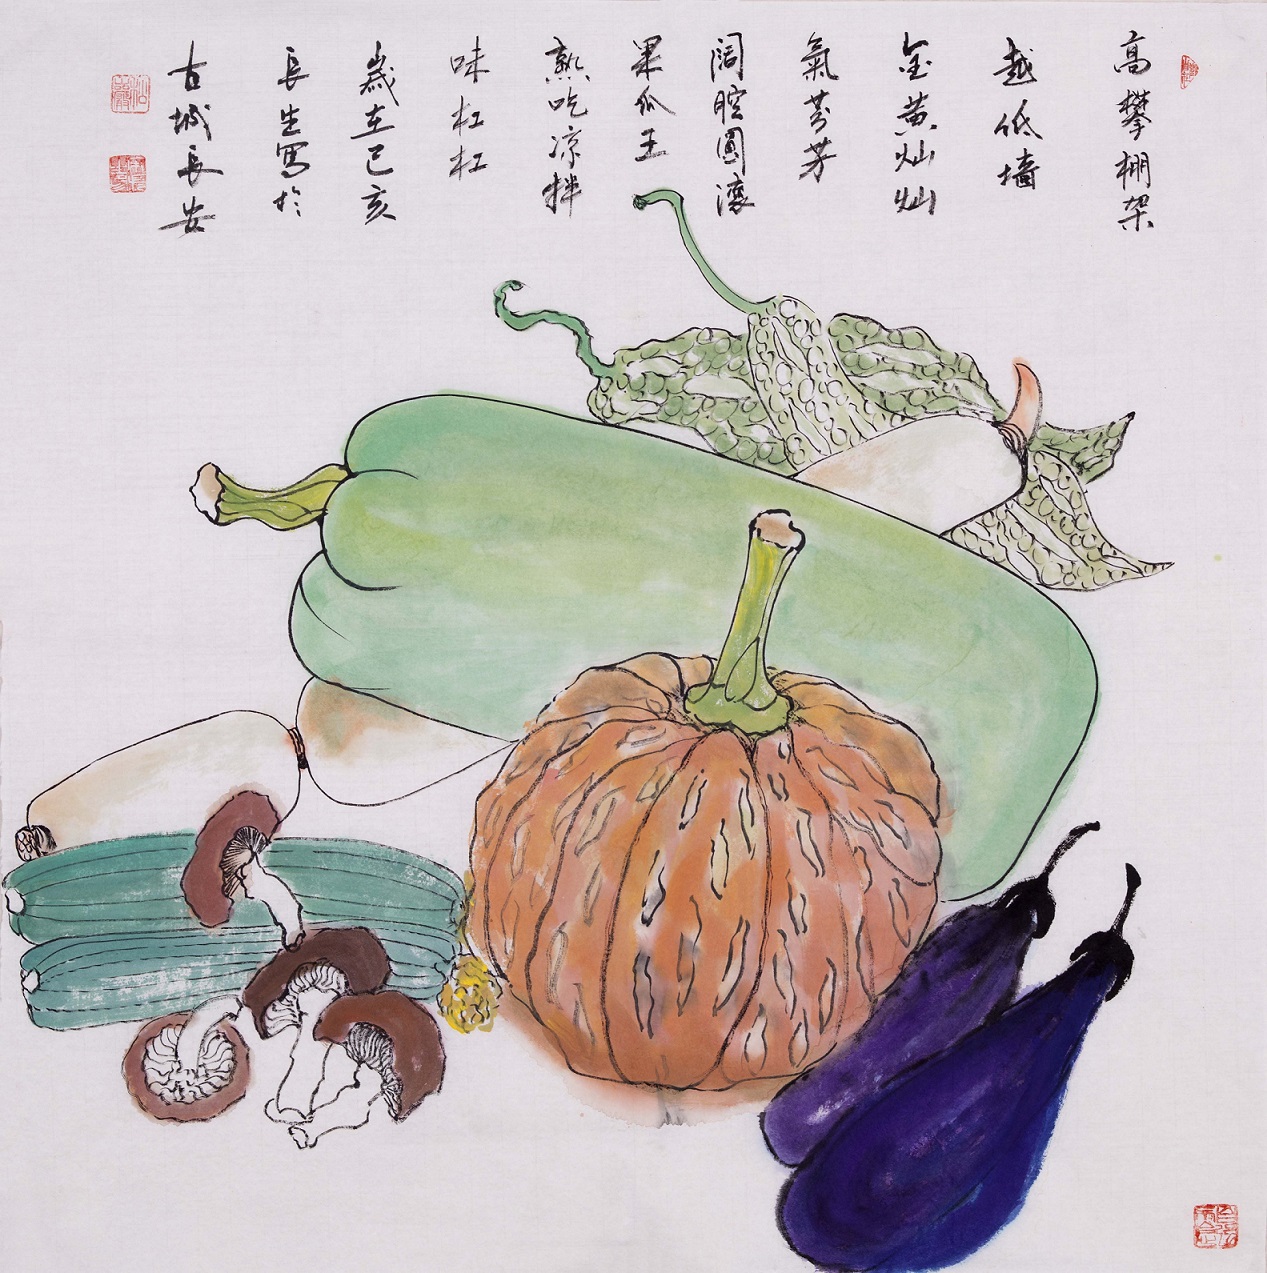 高攀棚架
越低墙
金黄灿灿
氣芬芳
阔腔圓滚
果瓜王
熟吃凉拌
味杠杠
歲在己亥
長生寫於
古城長安